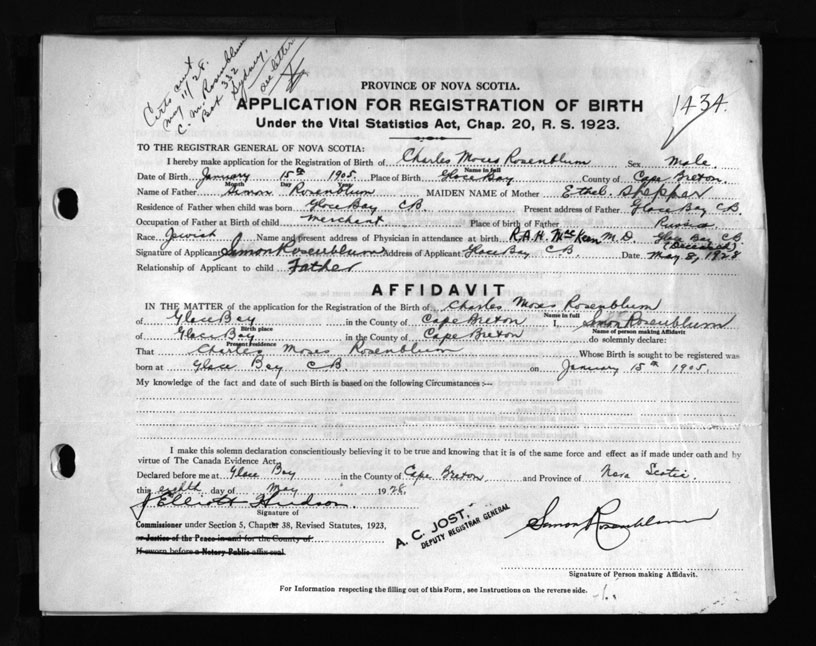 Certs sent
May 11/28.
C. M. Rosenblum
Box 332
Sydney.
see letter
PROVINCE OF NOVA SCOTIA.
APPLICATION FOR REGISTRATION OF BIRTH
1434.
Under the Vital Statistics Act, Chap. 20, R. S. 1923.
TO THE REGISTRAR GENERAL OF NOVA SCOTIA:
I hereby make application for the Registration of Birth of Charles Moses Rosenblum Sex Male
Name in full
Date of Birth January 15th 1905. Place of Birth Glace Bay County of Cape Breton.
Month Day Year
Name of Father Simon Rosenblum MAIDEN NAME of Mother Ethel Shepper
Residence of Father when child was born Glace Bay CB. Present address of Father Glace Bay CB
Occupation of Father at Birth of child Merchant Place of birth of Father Russia
Race Jewish Name and present address of Physician in attendance at birth R.A.H. McKeen M.D. Glace Bay C.B. (Deceased)
Signature of Applicant Simon Rosenblum Address of Applicant Glace Bay CB Date May 8, 1928
Relationship of Applicant to child Father
AFFIDAVIT
IN THE MATTER of the application for the Registration of the Birth of Charles Moses Rosenblum
Name in full
of Glace Bay in the County of Cape Breton I, Simon Rosenblum
Birth place Name of person making Affidavit
of Glace Bay in the County of Cape Breton do solemnly declare:
Present Residence
That Charles Moses Rosenblum Whose Birth is sought to be registered was
born at Glace Bay CB on January 15th 1905.
My knowledge of the fact and date of such Birth is based on the following Circumstances :—
I make this solemn declaration conscientiously believing it to be true and knowing that it is of the same force and effect as if made under oath and by
virtue of The Canada Evidence Act.
Declared before me at Glace Bay in the County of Cape Breton and Province of Nova Scotia
this eighth day of May 1928.
J Elliott Hudson
Signature of
Commissioner under Section 5, Chapter 38, Revised Statutes, 1923,
or Justice of the Peace in and for the County of
If sworn before a Notary Public affix seal
A. C. JOST,
DEPUTY REGISTRAR GENERAL
Simon Rosenblum
Signature of Person making Affidavit.
For Information respecting the filling out of this Form, see Instructions on the reverse side.